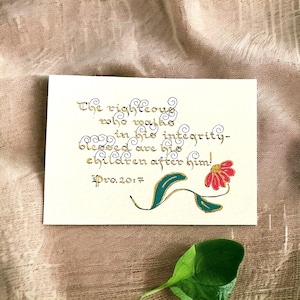 The righteous
who walks
in his integrity-
blessed are his
children after him!
Pro. 20:7